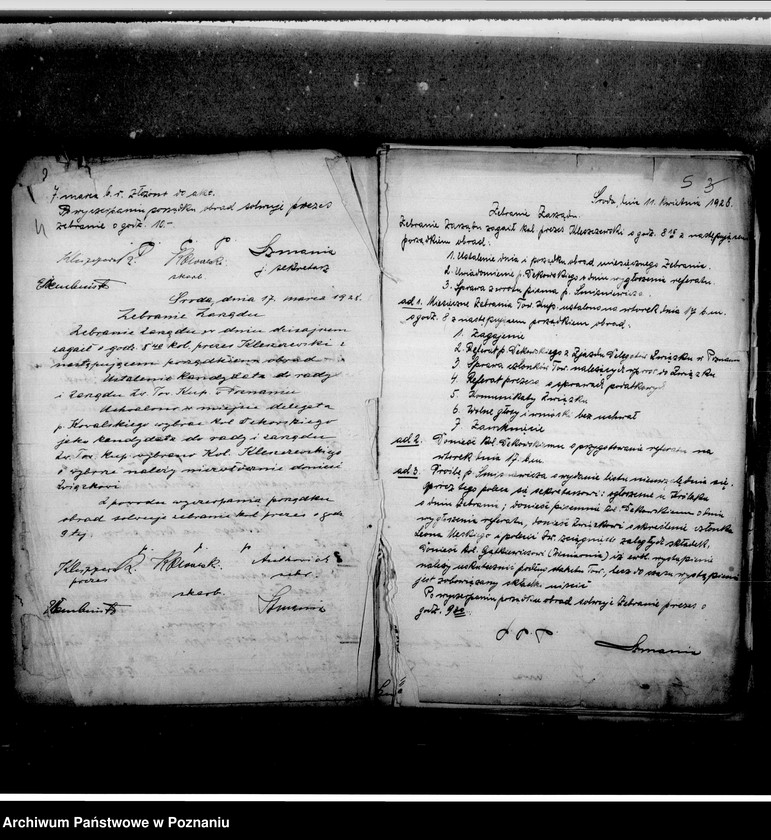 7 marca b. r. złożono do akc.
Po wyczerpaniu porządku obrad solwuje prezes
zebranie o godz. 10-
Szmania
skarb. sekretarz
Środa, dnia 17. marca 1928.
Zebranie Zarządu
Zebranie zarządu w dniu dzisiejszem
zagaił o godz. 8 kol. prezes Kleszewski z
następującym porządkiem obrad
Ustalenie kandydata do rady
i Zarządu Zw. Tow. Kup. w Poznaniu
Uchwalono w miejsce delegata
p. Kowalskiego wybrać kol. Dekowskiego
jako kandydata do rady i zarządu
Zw. Tow. Kup. wybrano Kol. Kleszewskiego
o wyborze należy niezwłocznie donieść
Związkowi
Z powodu wyczerpania porządku
obrad solwuje zebranie kol. prezes o godz
9 tej.
prezes skarb. sekr.
Szmania
5 3
Środa, dnia 11. kwietnia 1928.
Zebranie Zarządu.
Zebranie Zarządu zagaił kol. prezes Kleszewski o godz. 8 z następującem
porządkiem obrad:
1. Ustalenie dnia i porządku obrad miesięcznego Zebrania.
2. Uwiadomienie p. Dekowskiego o dniu wygłoszenia referatu.
3. Sprawa zwrotu pisma p. Smiśniewicza.
ad 1. Miesięczne Zebranie Tow. Kup. ustalono na wtorek dnia 17 b. m.
o godz. 8 z następującem porządkiem obrad:
1. Zagajenie
2. Referat p. Dekowskiego z Zjazdu Delegatów Związku w Poznaniu
3. Sprawa członków Tow. należących wprost do Związku.
4. Referat prezesa o sprawach podatkowych
5. Komunikaty Związku
6. Wolne głosy i wnioski bez uchwał
7. Zamknięcie
ad 2. Donieść kol. Dekowskiemu o przygotowaniu referatu na
wtorek dnia 17. b. m.
ad 3. Prośbę p. Smiśniewicza o wydanie listu nieuwzględnia się.
Oprócz tego poleca się sekretarzowi: ogłoszenie u Królika
o dniu Zebrania; donieść piśmiennie kol. Dekowskiemu o dniu
wygłoszenia referatu, donieść Związkowi o skreśleniu członka
Leona i polecić Tow. ściągnięcie zaległych składek.
Donieść kol. (Winiarnia), iż wystąpienie
należy uskutecznić podług statutu Tow., lecz do czasu wystąpienia
jest zobowiązany składki uiścić
Po wyczerpaniu porządku obrad solwuje Zebranie prezes o
godz. 9
Szmania
Archiwum Państwowe w Poznaniu